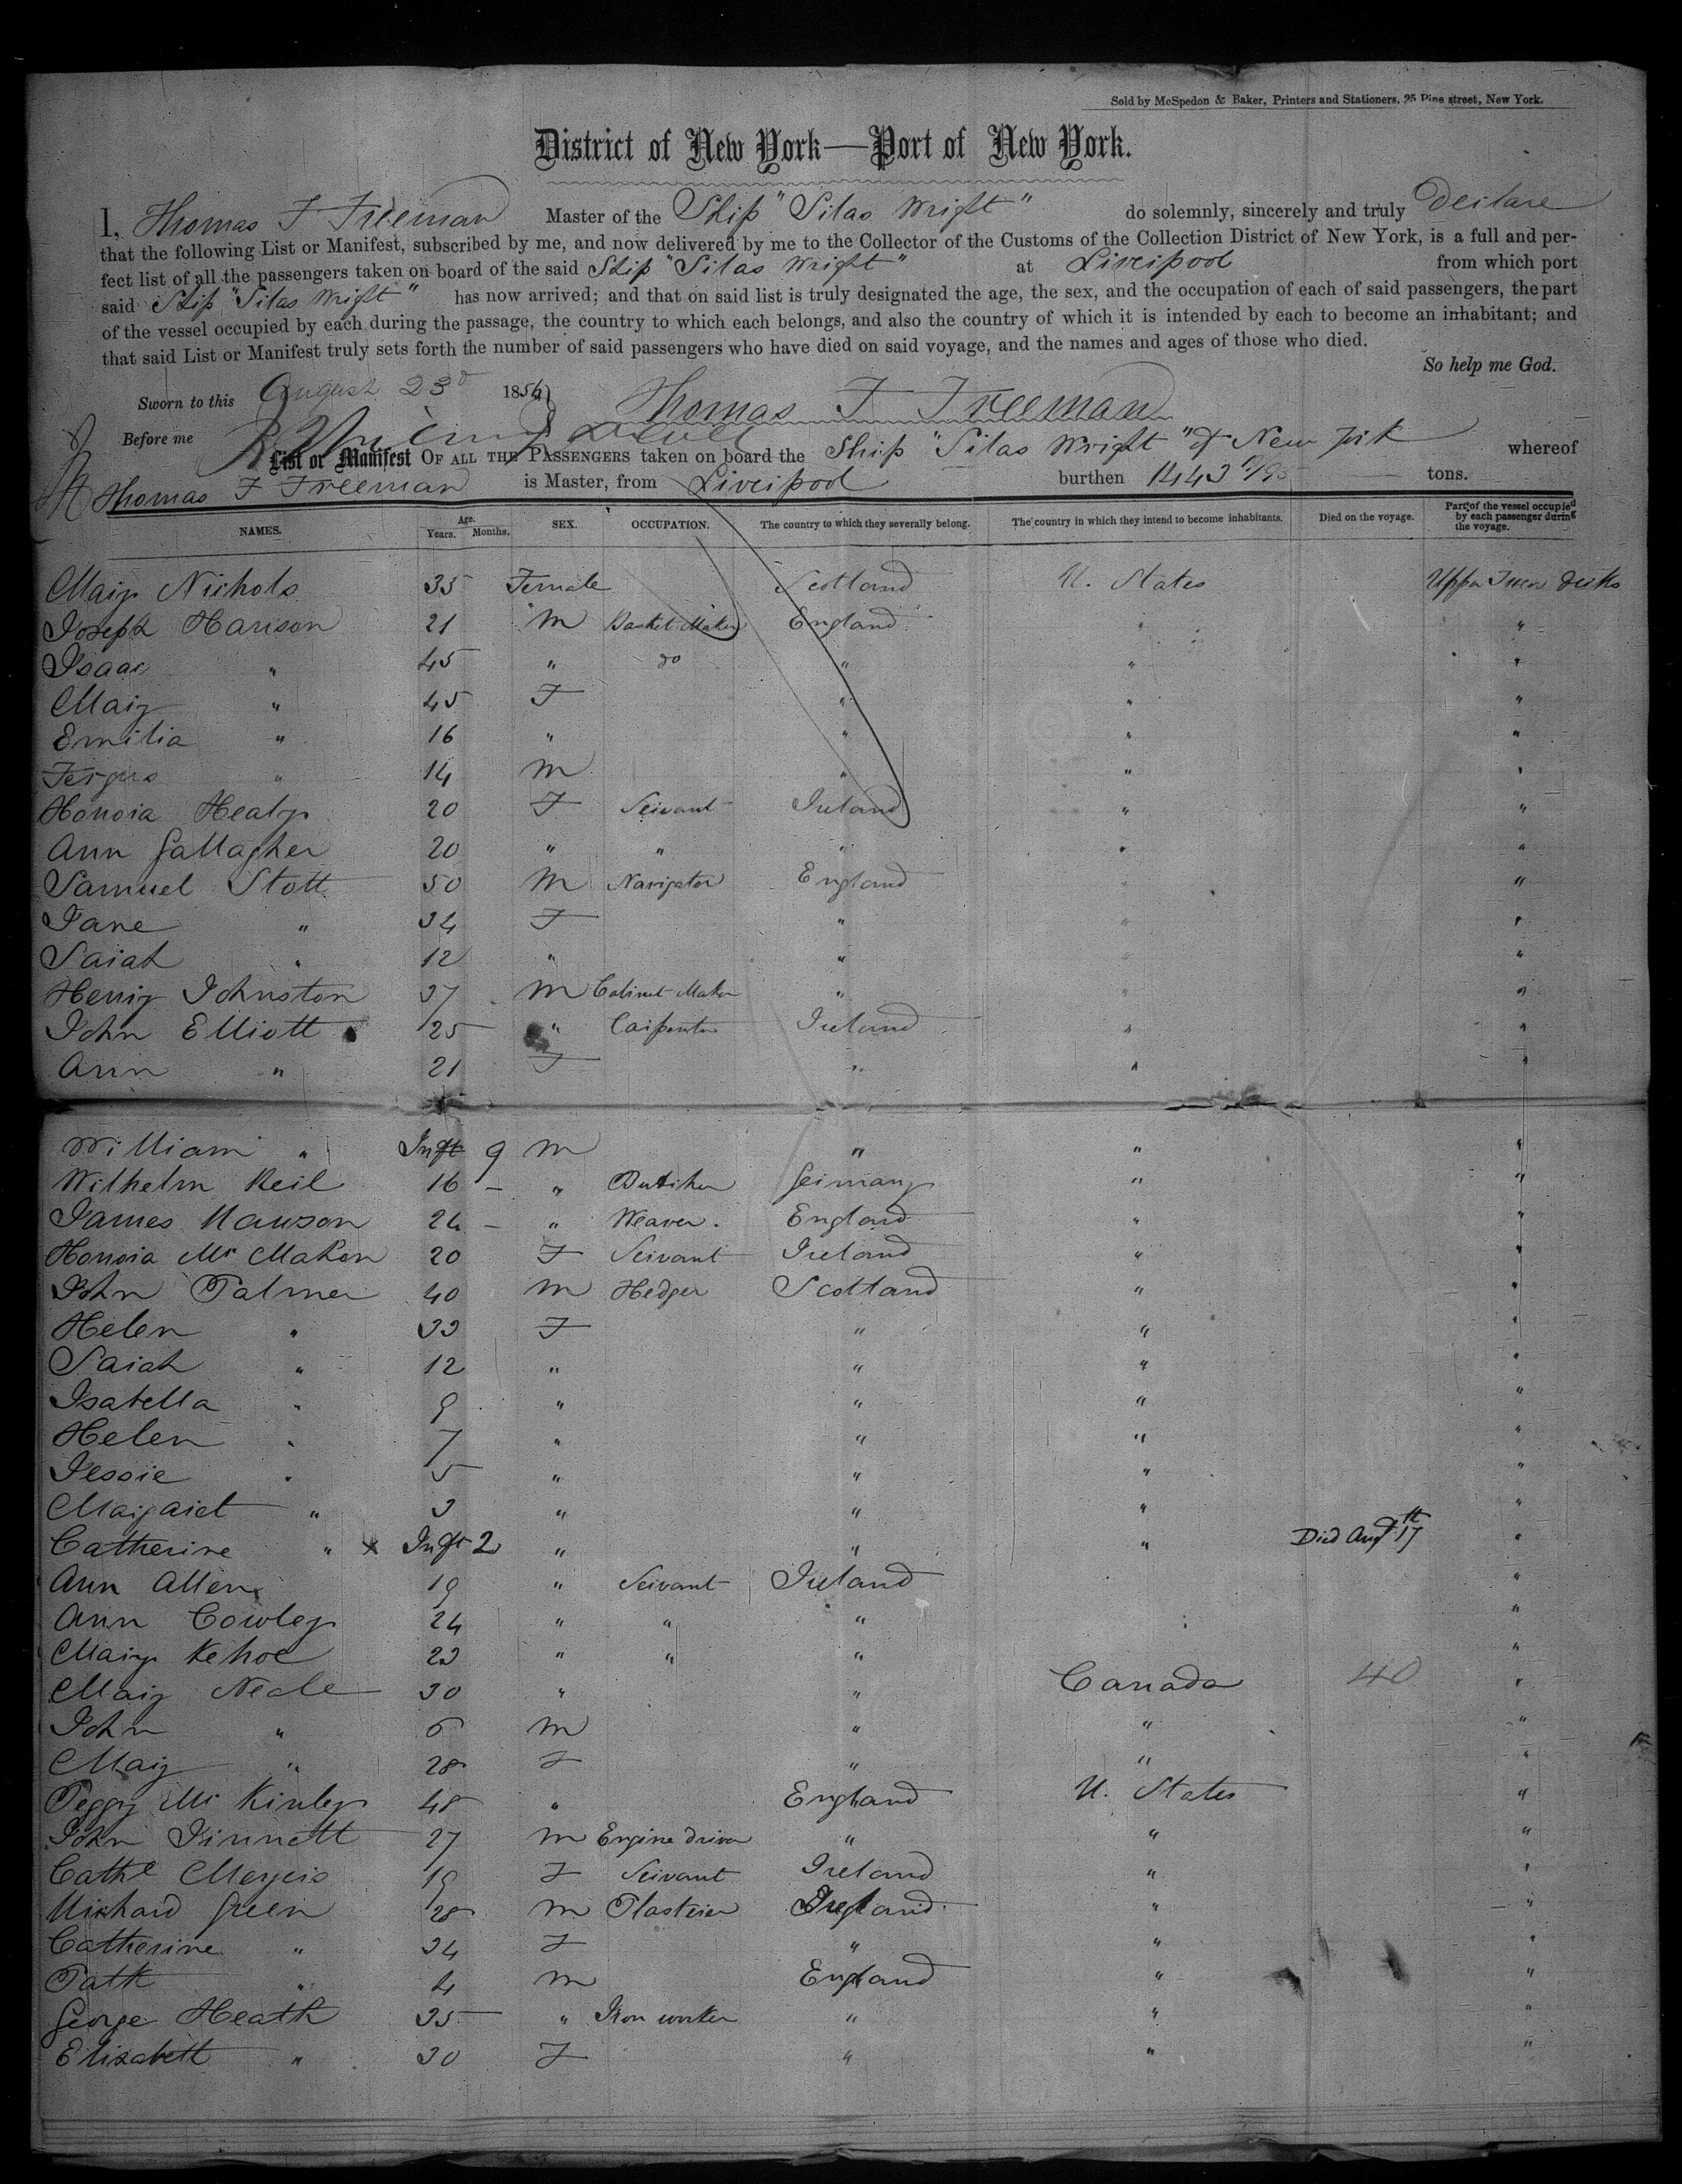 Sold by McSpedon & Baker, Printers and Stationers, 25 Pine street, New York.
District of New York—Port of New York.
I, Thomas F Freeman Master of the Ship "Silas Wright" do solemnly, sincerely and truly Declare
that the following List or Manifest, subscribed by me, and now delivered by me to the Collector of the Customs of the Collection District of New York, is a full and per-
fect list of all the passengers taken on board of the said Ship "Silas Wright" at Liverpool from which port
said Ship "Silas Wright" has now arrived; and that on said list is truly designated the age, the sex, and the occupation of each of said passengers, the part
of the vessel occupied by each during the passage, the country to which each belongs, and also the country of which it is intended by each to become an inhabitant; and
that said List or Manifest truly sets forth the number of said passengers who have died on said voyage, and the names and ages of those who died.
So help me God.
Sworn to this August 23d 1856 Thomas F Freeman
Before me
List or Manifest OF ALL THE PASSENGERS taken on board the Ship "Silas Wright" of New York whereof
Thomas F Freeman is Master, from Liverpool burthen 1443 /95 tons.
NAMES. Age. Years. Months. SEX. OCCUPATION. The country to which they severally belong. The country in which they intend to become inhabitants. Died on the voyage. Part of the vessel occupied by each passenger during the voyage.
Mary Nichols 35 Female Scotland U. States Upper Decks
Joseph Harison 21 M Basket Maker England " "
Isaac " 45 " do " " "
Mary " 45 F " " "
Emilia " 16 " " " "
Fergus " 14 M " " "
Honora Healy 20 F Servant Ireland " "
Ann Gallagher 20 " " " " "
Samuel Stott 50 M Navigator England " "
Jane " 34 F " " "
Sarah " 12 " " " "
Henry Johnston 37 M Cabinet Maker " " "
John Elliott 25 " Carpenter Ireland " "
Ann " 21 F " " "
William " Inft 9 M " " "
Wilhelm Keil 16 – " Butcher Germany " "
James Mawson 24 – " Weaver. England " "
Honora Mc Mahon 20 F Servant Ireland " "
John Palmer 40 M Hedger Scotland " "
Helen " 33 F " " "
Sarah " 12 " " " "
Isabella " 9 " " " "
Helen " 7 " " " "
Jessie " 5 " " " "
Margaret " 3 " " " "
Catherine " x Inft 2 " " " Died Augt 17th "
Ann Allen 19 " Servant Ireland "
Ann Cowley 24 " " " "
Mary Kehoe 23 " " " "
Mary Neale 30 " " Canada 40 "
John " 6 M " " "
Mary " 28 F " " "
Peggy Mc Kinley 48 " England U. States "
John Sinnett 27 M Engine driver " " "
Cathe 19 F Servant Ireland " "
Richard Green 28 M Plasterer Ireland " "
Catherine " 34 F " " "
Patk " 4 M England " "
George Heath 35 " Iron worker " " "
Elizabett " 30 F " " "